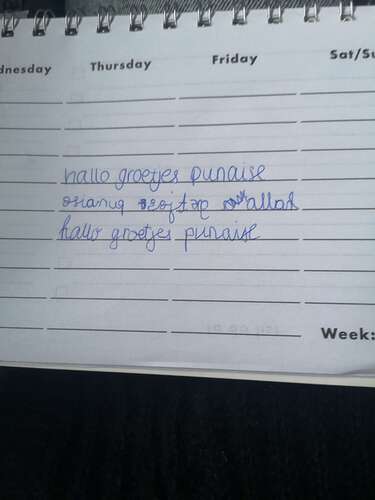 dnesday Thursday Friday Sat/Su
hallo groetjes punaise
hallo groetjes punaise
Week: